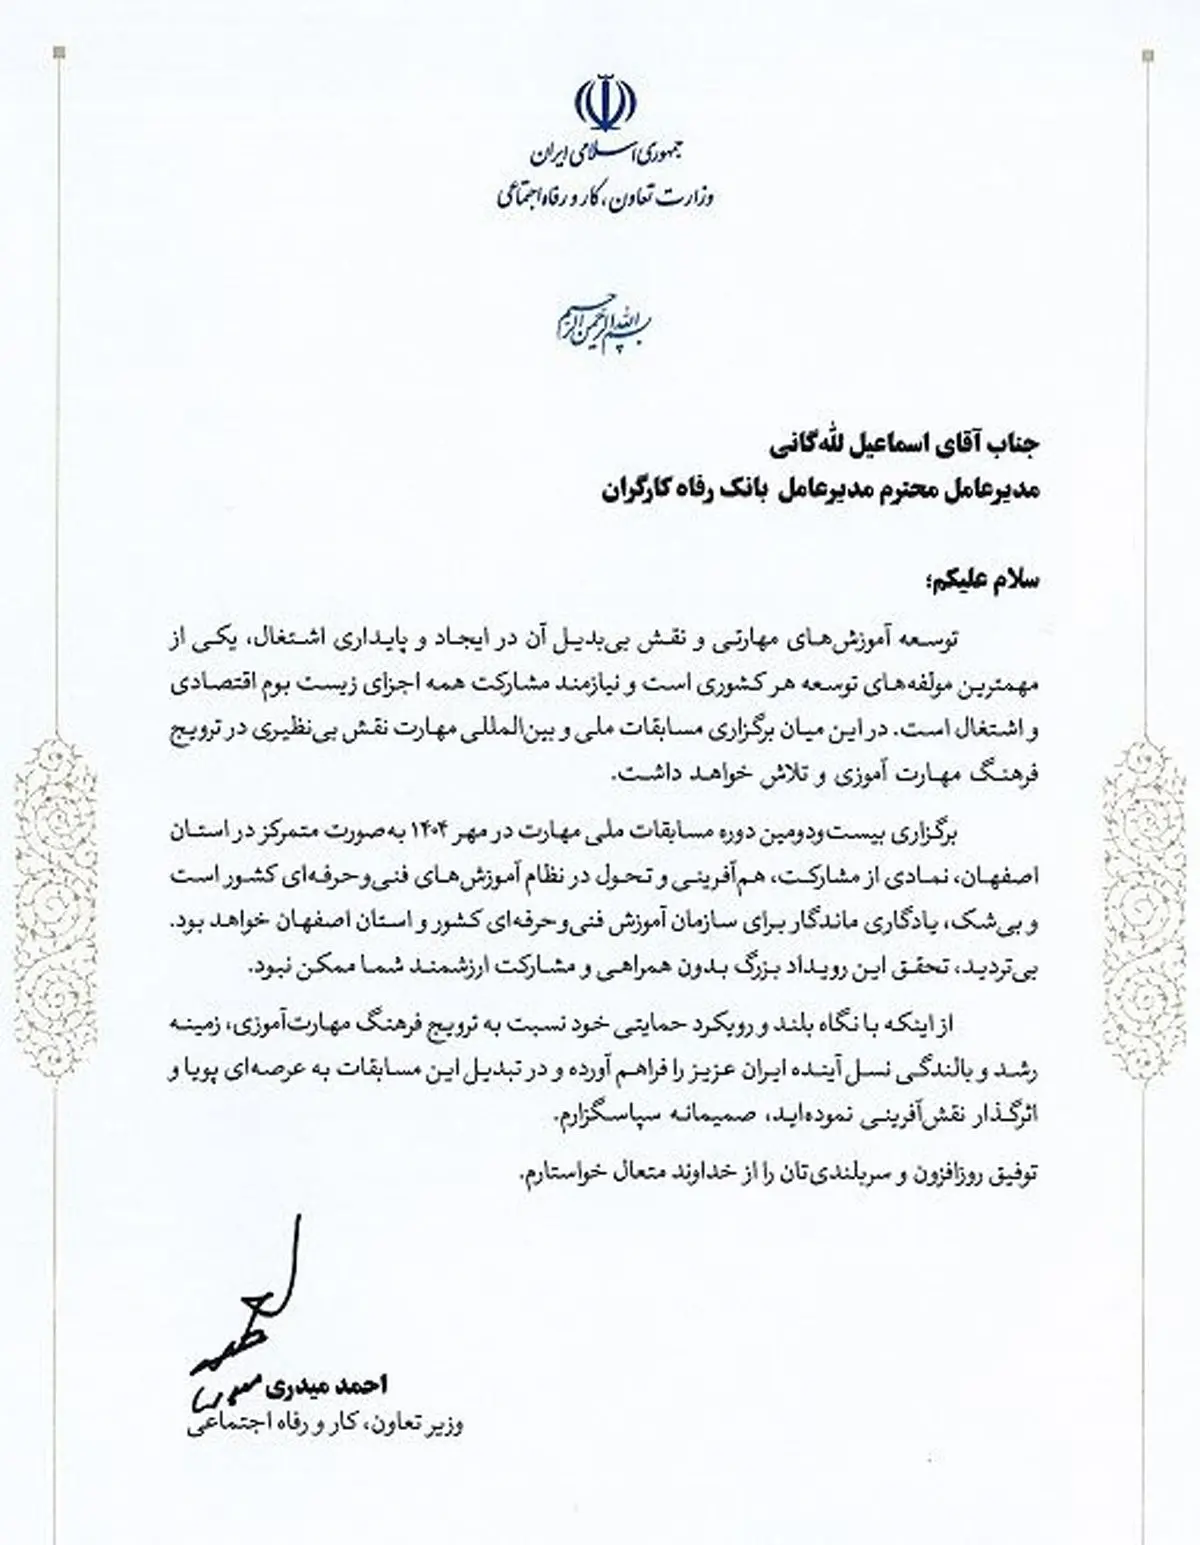 جمهوری اسلامی ایران
وزارت تعاون، کار و رفاه اجتماعی
بسم الله الرحمن الرحیم
جناب آقای اسماعیل لله‌گانی
مدیرعامل محترم مدیرعامل بانک رفاه کارگران
سلام علیکم؛
توسعه آموزش‌های مهارتی و نقش بی‌بدیل آن در ایجاد و پایداری اشتغال، یکی از
مهمترین مولفه‌های توسعه هر کشوری است و نیازمند مشارکت همه اجزای زیست بوم اقتصادی
و اشتغال است. در این میان برگزاری مسابقات ملی و بین‌المللی مهارت نقش بی‌نظیری در ترویج
فرهنگ مهارت آموزی و تلاش خواهد داشت.
برگزاری بیست‌ودومین دوره مسابقات ملی مهارت در مهر ۱۴۰۴ به‌صورت متمرکز در استان
اصفهان، نمادی از مشارکت، هم‌آفرینی و تحول در نظام آموزش‌های فنی‌وحرفه‌ای کشور است
و بی‌شک، یادگاری ماندگار برای سازمان آموزش فنی‌وحرفه‌ای کشور و استان اصفهان خواهد بود.
بی‌تردید، تحقق این رویداد بزرگ بدون همراهی و مشارکت ارزشمند شما ممکن نبود.
از اینکه با نگاه بلند و رویکرد حمایتی خود نسبت به ترویج فرهنگ مهارت‌آموزی، زمینه
رشد و بالندگی نسل آینده ایران عزیز را فراهم آورده و در تبدیل این مسابقات به عرصه‌ای پویا و
اثرگذار نقش‌آفرینی نموده‌اید، صمیمانه سپاسگزارم.
توفیق روزافزون و سربلندی‌تان را از خداوند متعال خواستارم.
احمد میدری
وزیر تعاون، کار و رفاه اجتماعی